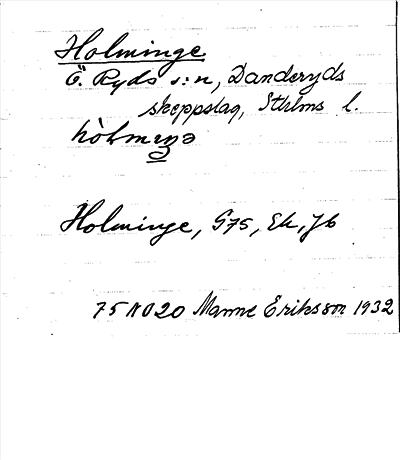 Holminge
Ö. Ryds s:n, Danderyds
skeppslag, Sthlms l.
Holminge, G75, Ek, Jb
75 NO20 Manne Eriksson 1932